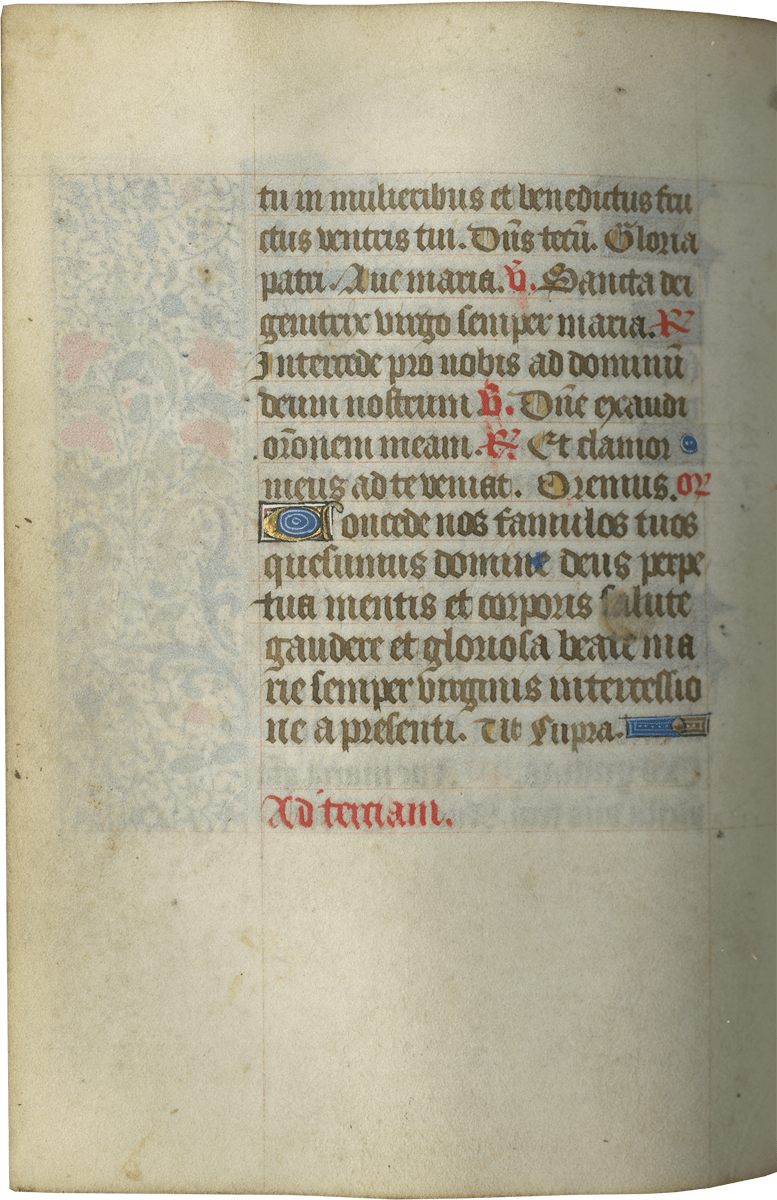 tu in mulieribus et benedictus fru
ctus ventris tui. Dn̄s tecū. Gloria
patri. Aue maria. V̄. Sancta dei
genitrix virgo semper maria. R̄
Intercede pro nobis ad dominū
deum nostrum V̄. Dn̄e exaudi
or̄onem meam. R̄ Et clamor
meus ad te veniat. Oremus. or
Concede nos famulos tuos
quesumus domine deus perpe
tua mentis et corporis salute
gaudere et gloriosa beate ma
rie semper virginis intercessio
ne a presenti. Vt supra.
Ad terciam.